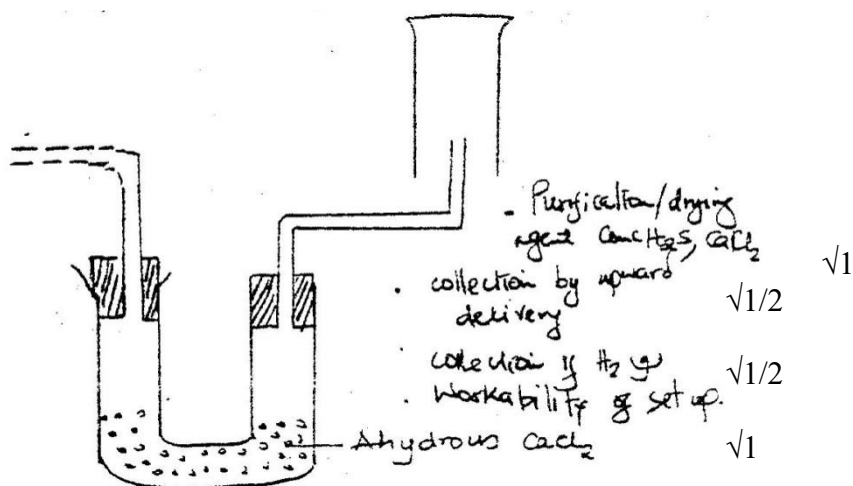 . Purification/drying
agent Conc H2S, CaCl2
√1
. collection by upward
delivery
√1/2
collection if H2 g
√1/2
. Workability of set up.
Ahydrous CaCl2
√1